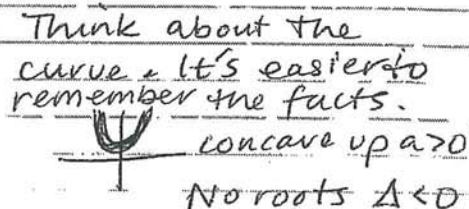 Think about the
curve. It's easier to
remember the facts.
concave up a>0
No roots Δ<0